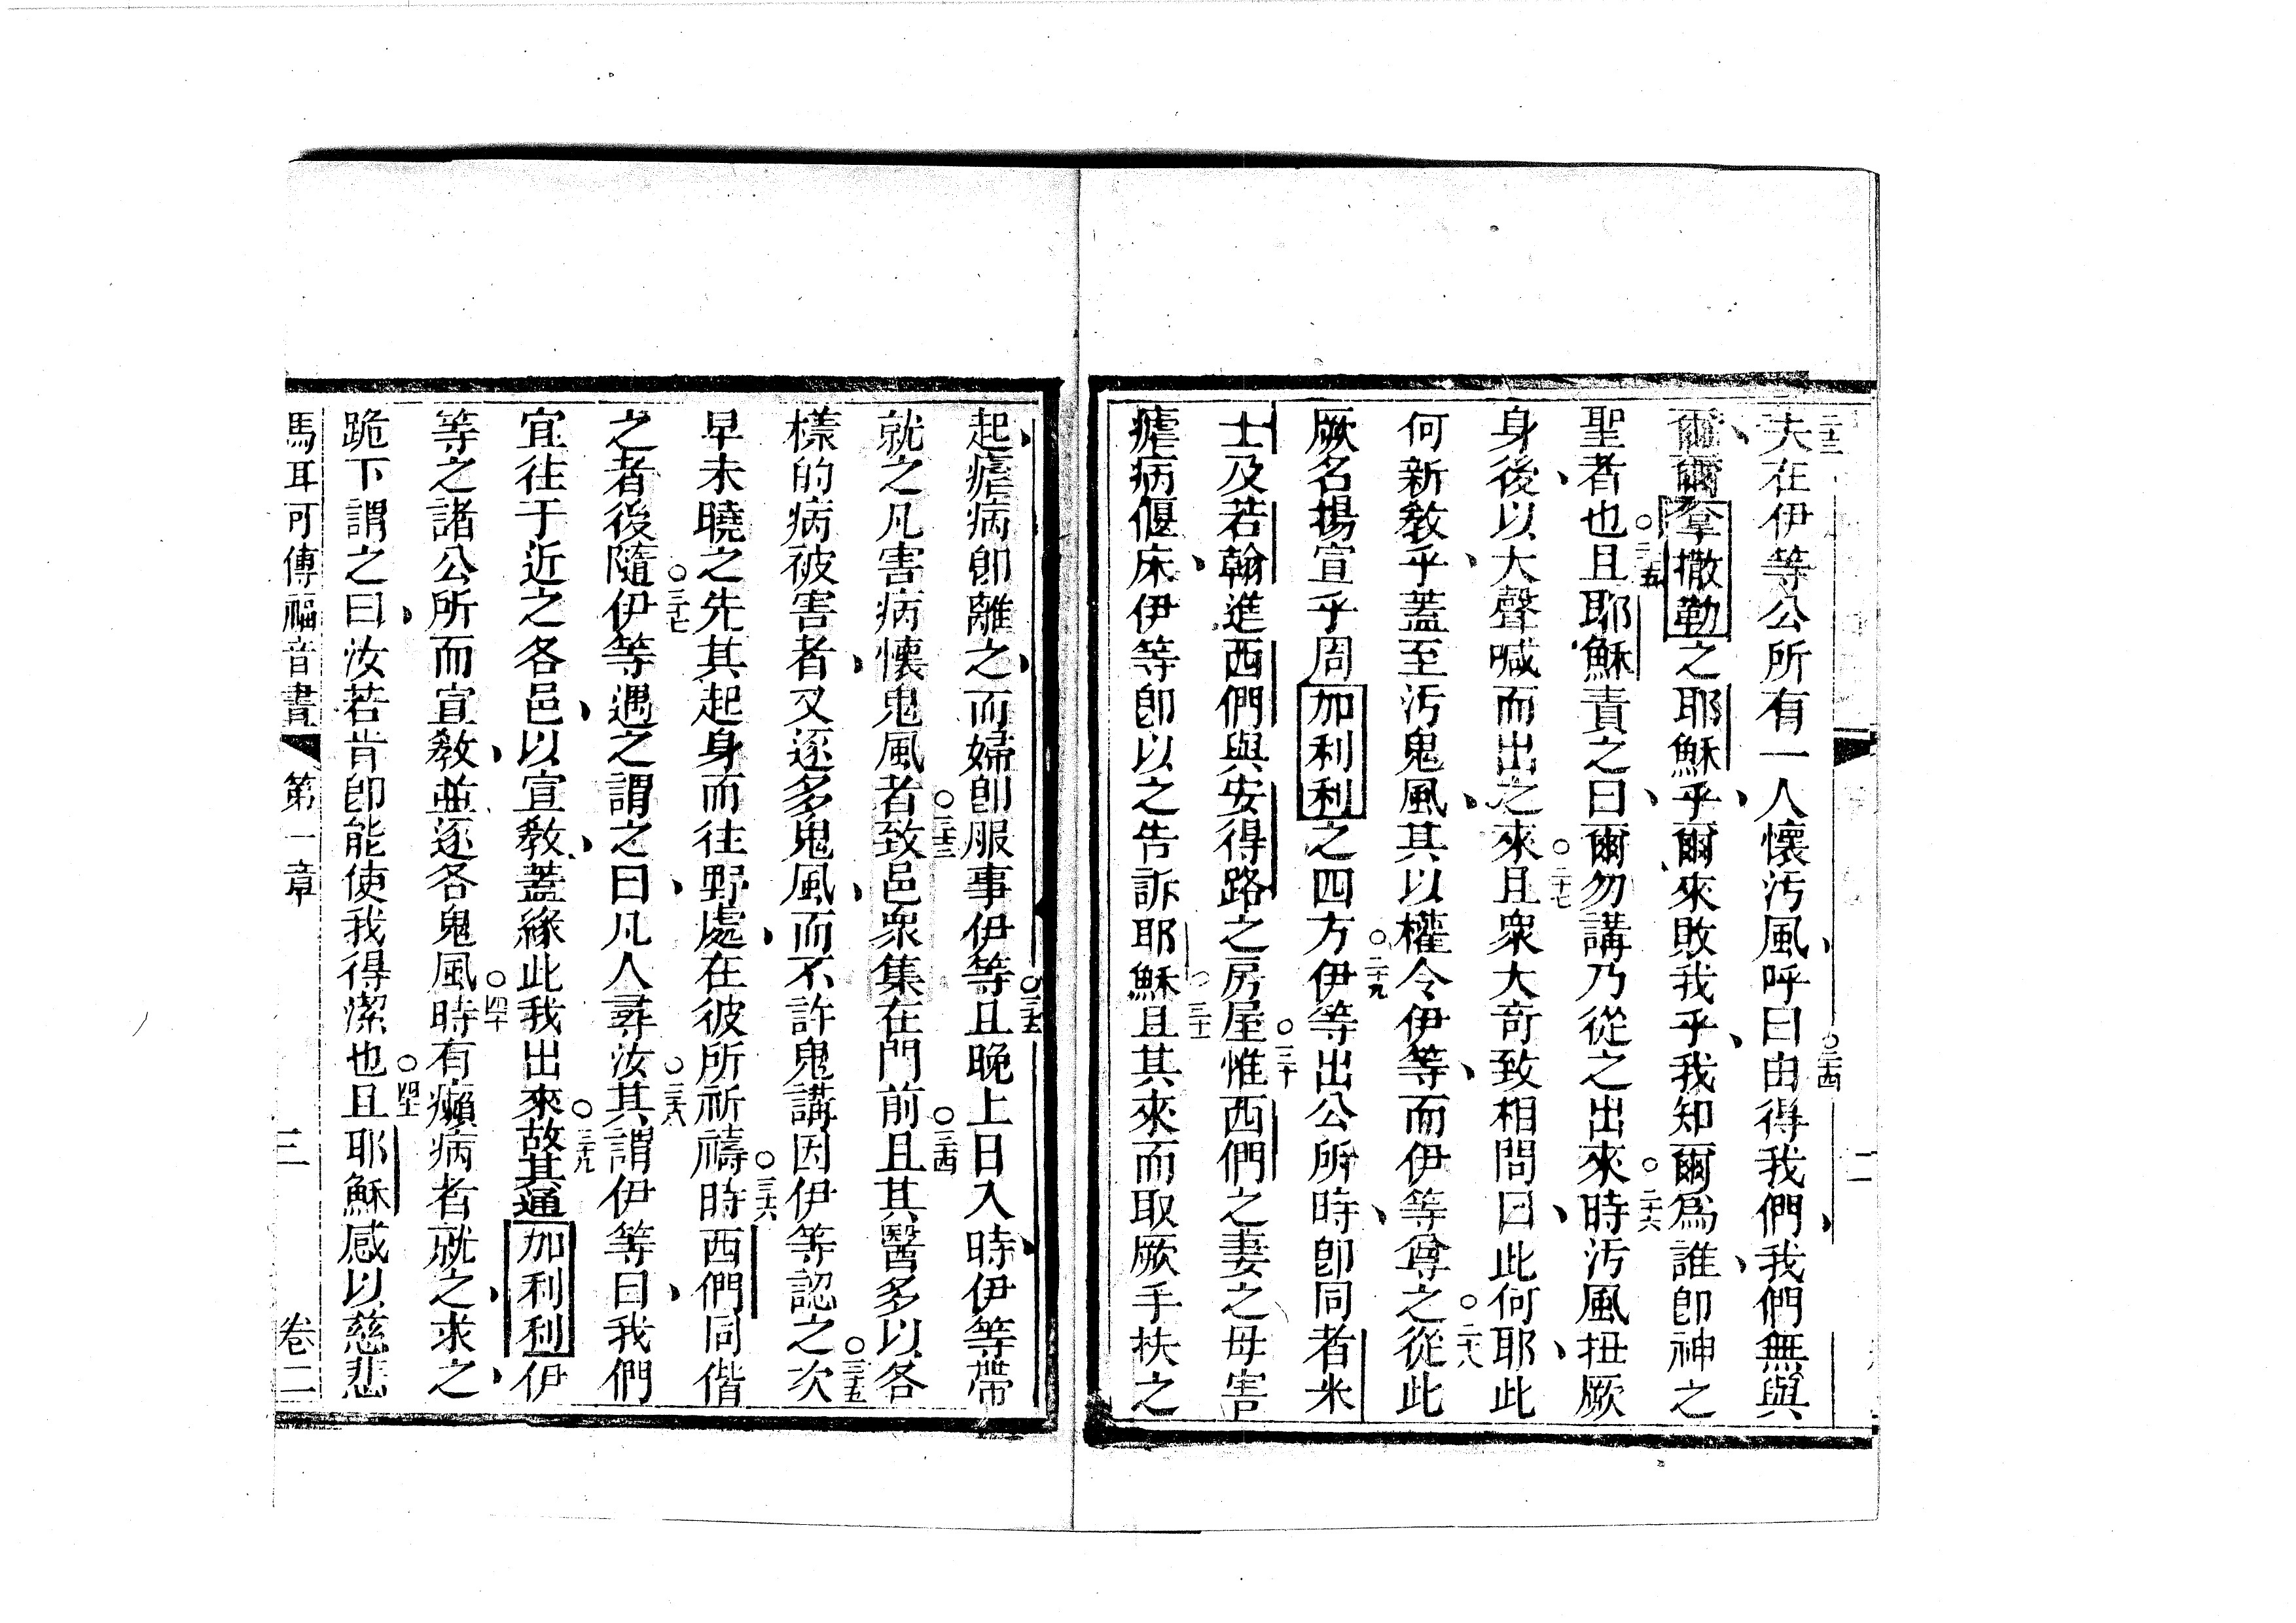 夫在伊等公所有一人懷污風、呼曰○二十四由得我們、我們無與
爾、爾拿撒勒之耶穌乎、爾來敗我乎、我知爾爲誰、卽神之
聖者也○二十五且耶穌責之曰、爾勿講乃從之出來○二十六時污風扭厥
身、後以大聲喊而出之來○二十七且衆大奇致相問曰、此何耶、此
何新教乎、蓋至污鬼風、其以權令伊等、而伊等尊之○二十八從此
厥名揚宣乎周加利利之四方○二十九伊等出公所時、卽同者米
士及若翰進西們與安得路之房屋○三十惟西們之妻之母害
瘧病偃床、伊等卽以之告訴耶穌○三十一且其來而取厥手扶之
起、瘧病卽離之、而婦卽服事伊等○三十二且晚上日入時、伊等帶
就之凡害病懷鬼風者○三十三致邑衆集在門前○三十四且其醫多以各
樣的病被害者、又逐多鬼風、而不許鬼講因伊等認之○三十五次
早未曉之先其起身而往野處、在彼所祈禱○三十六時西們同偕
之者後隨伊等○三十七遇之謂之曰、凡人尋汝○三十八其謂伊等曰、我們
宜往于近之各邑、以宣教、蓋緣此我出來○三十九故其通加利利伊
等之諸公所而宣教、並逐各鬼風○四十時有癩病者就之、求之、
跪下謂之曰、汝若肯卽能使我得潔也○四十一且耶穌感以慈悲
馬耳可傳福音書 第一章 三 卷二